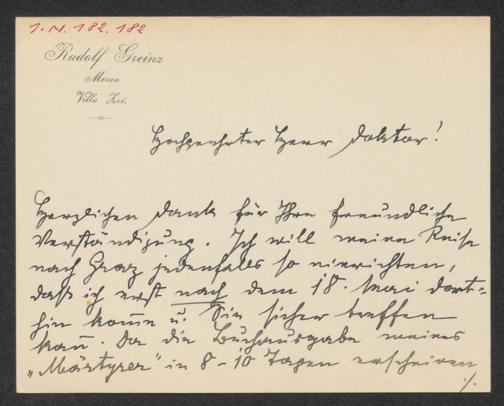 I.N. 182.182
Rudolf Greinz
Meran
Villa Zoë.
Hochgeehrter Herr Doktor!
Herzlichen Dank für Ihre freundliche
Verständigung. Ich will meine Reise
nach Graz jedenfalls so einrichten,
daß ich erst nach dem 18. Mai dort=
hin kom̅e u. Sie sicher treffen
kan̅. Da die Buchausgabe meines
„Märtyrer" in 8-10 Tagen erscheinen
./.